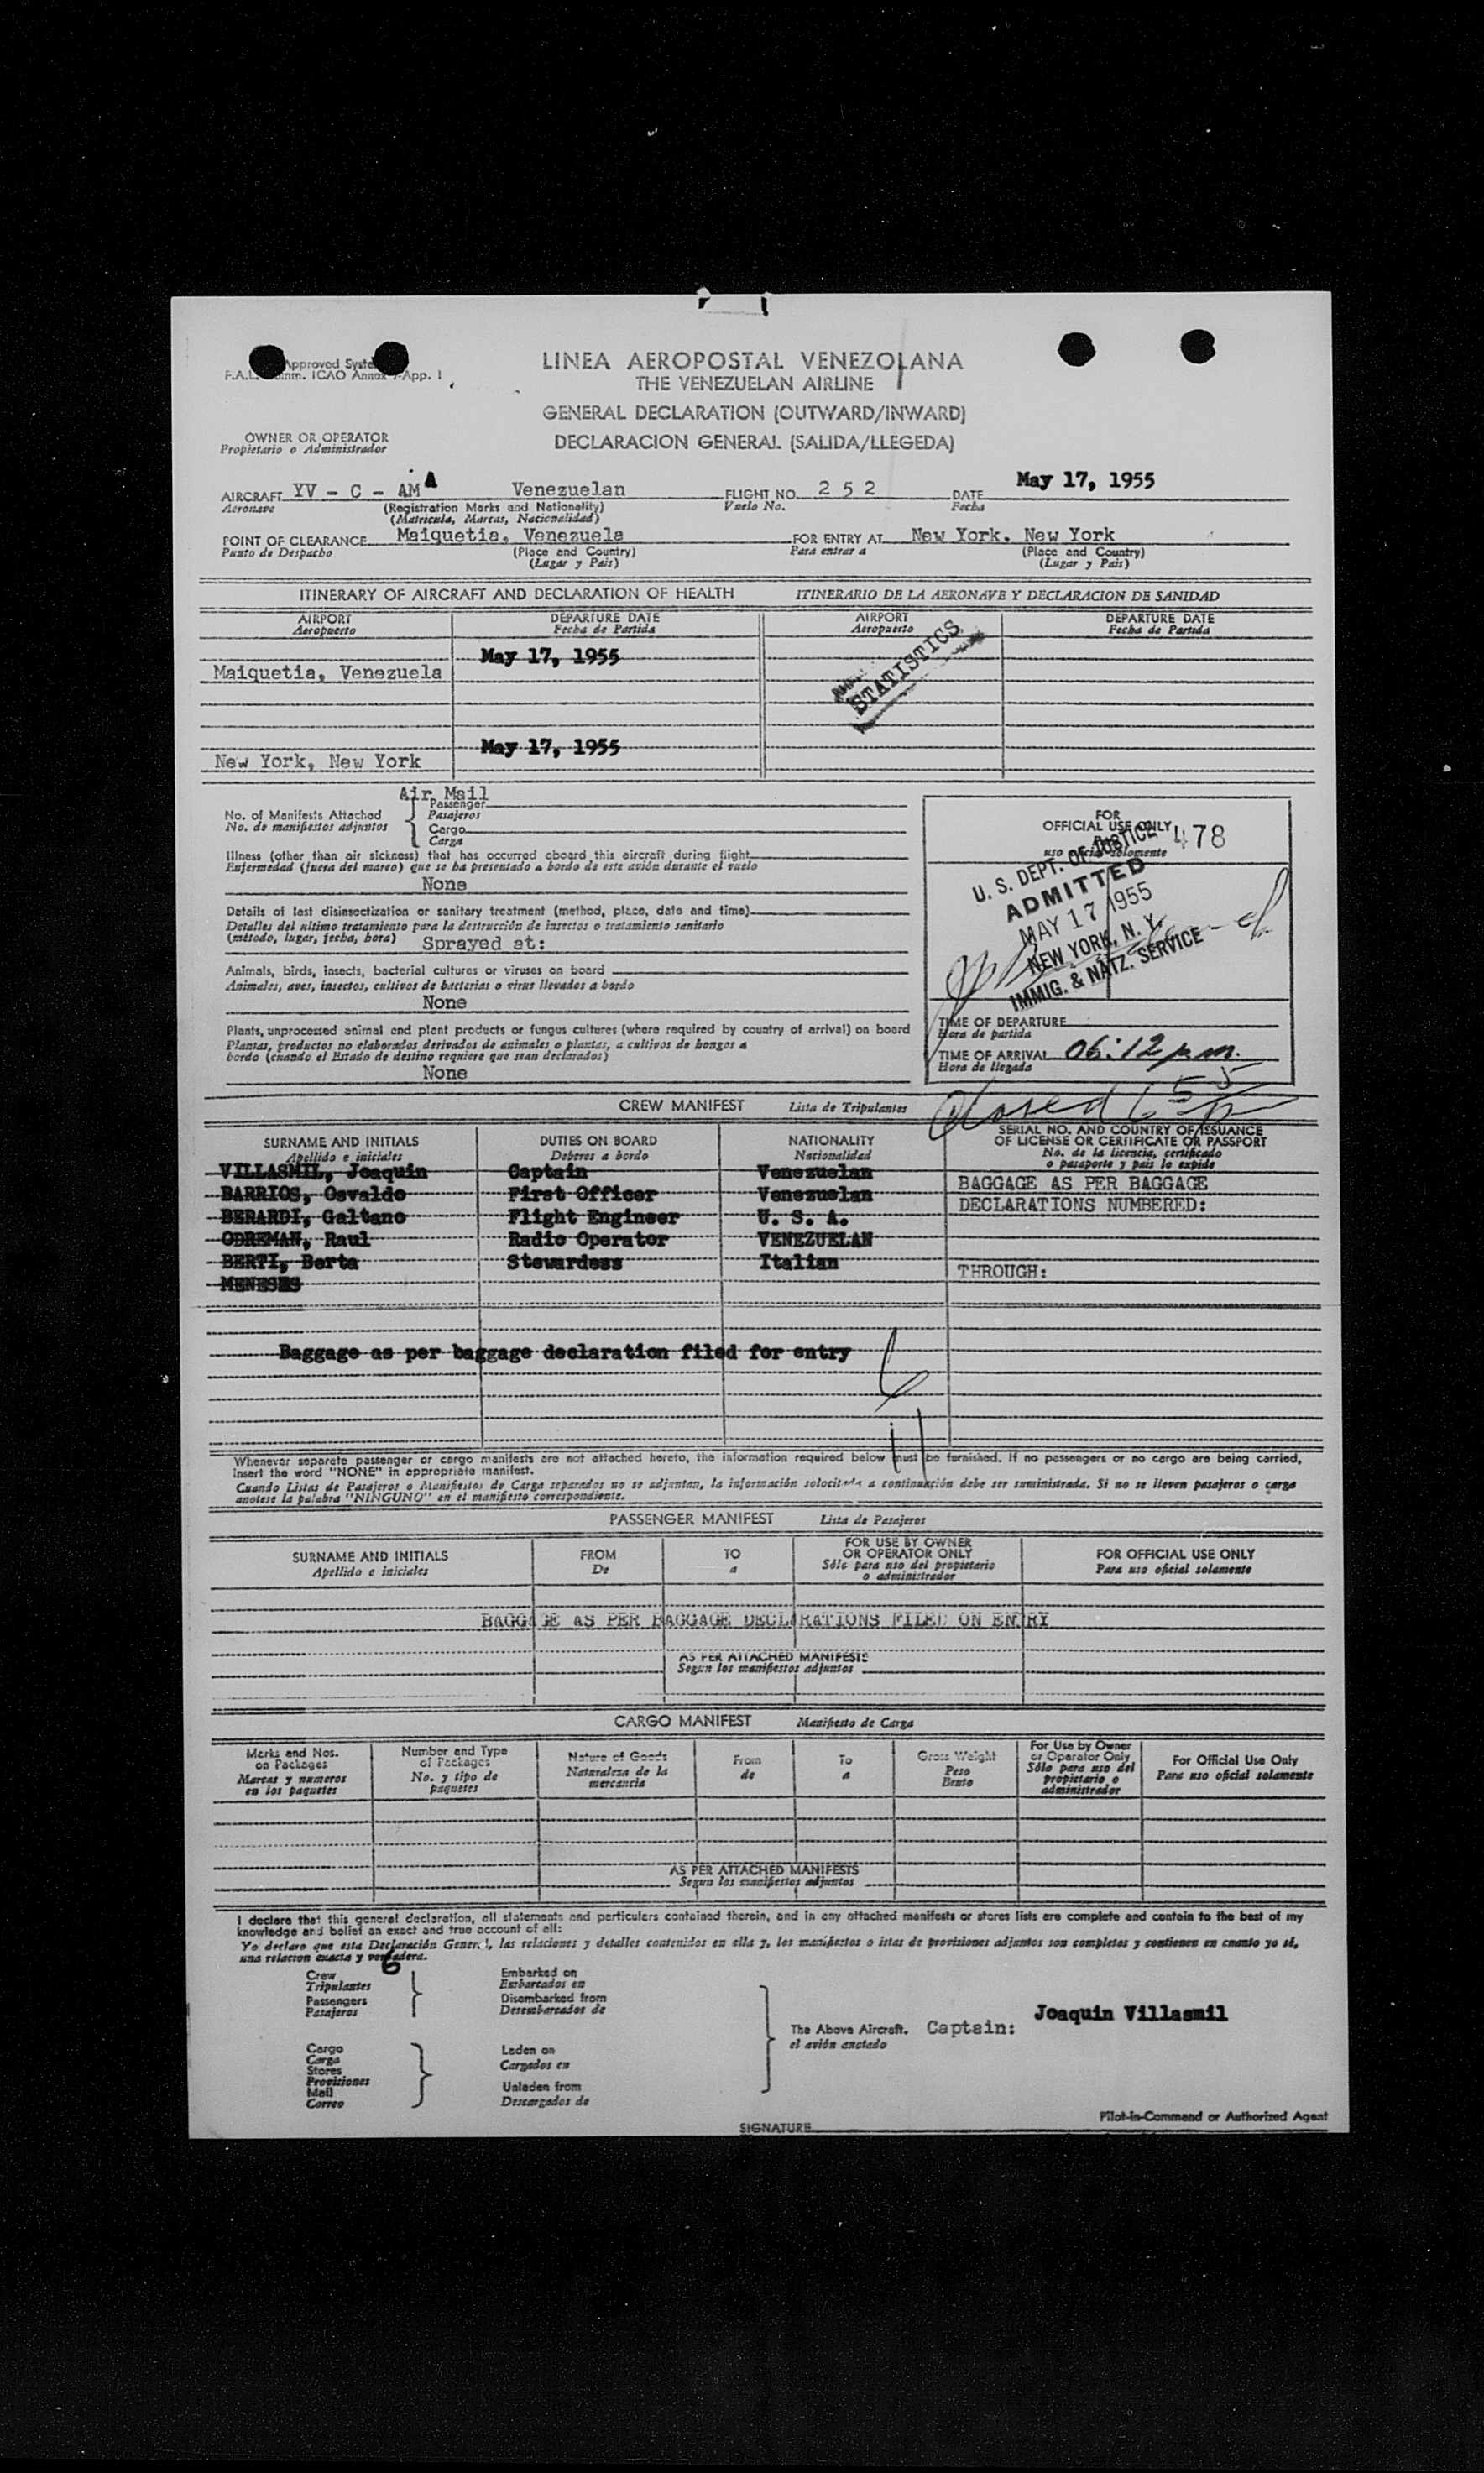 Approved
F.A.L. Comm. ICAO Annex App. 1
LINEA AEROPOSTAL VENEZOLANA
THE VENEZUELAN AIRLINE
GENERAL DECLARATION (OUTWARD/INWARD)
DECLARACION GENERAL (SALIDA/LLEGEDA)
OWNER OR OPERATOR
Propietario o Administrador
AIRCRAFT YV - C - AMA Venezuelan FLIGHT NO. 2 5 2 DATE May 17, 1955
Aeronave (Registration Marks and Nationality) Vuelo No. Fecha
(Matricula, Marcas, Nacionalidad)
POINT OF CLEARANCE Maiquetia, Venezuela FOR ENTRY AT New York, New York
Punto de Despacho (Place and Country) Para entrar a (Place and Country)
(Lugar y Pais) (Lugar y Pais)
ITINERARY OF AIRCRAFT AND DECLARATION OF HEALTH ITINERARIO DE LA AERONAVE Y DECLARACION DE SANIDAD
AIRPORT DEPARTURE DATE AIRPORT DEPARTURE DATE
Aeropuerto Fecha de Partida Aeropuerto Fecha de Partida
STATISTICS
May 17, 1955
Maiquetia, Venezuela
May 17, 1955
New York, New York
Air Mail
Passenger
No. of Manifests Attached Pasajeros
No. de manifiestos adjuntos Cargo
Carga
Illness (other than air sickness) that has occurred aboard this aircraft during flight
Enfermedad (fuera del mareo) que se ha presentado a bordo de este avión durante el vuelo
None
Details of last disinsectization or sanitary treatment (method, place, date and time)
Detalles del ultimo tratamiento para la destrucción de insectos o tratamiento sanitario
(método, lugar, fecha, hora) Sprayed at:
Animals, birds, insects, bacterial cultures or viruses on board
Animales, aves, insectos, cultivos de bacterias o virus llevados a bordo
None
Plants, unprocessed animal and plant products or fungus cultures (where required by country of arrival) on board
Plantas, productos no elaborados derivados de animales o plantas, a cultivos de hongos a
bordo (cuando el Estado de destino requiere que sean declarados)
None
FOR
OFFICIAL USE ONLY
478
U. S. DEPT. OF JUSTICE
ADMITTED
MAY 17 1955
NEW YORK, N. Y.
IMMIG. & NATZ. SERVICE
TIME OF DEPARTURE
Hora de partida
TIME OF ARRIVAL 06:12 p.m.
Hora de llegada
Closed 6 55 p
CREW MANIFEST Lista de Tripulantes
SURNAME AND INITIALS DUTIES ON BOARD NATIONALITY SERIAL NO. AND COUNTRY OF ISSUANCE
OF LICENSE OR CERTIFICATE OR PASSPORT
Apellido e iniciales Deberes a bordo Nacionalidad No. de la licencia, certificado
o pasaporte y pais lo expide
VILLASMIL, Joaquin Captain Venezuelan
BARRIOS, Osvaldo First Officer Venezuelan BAGGAGE AS PER BAGGAGE
BERARDI, Galtano Flight Engineer U. S. A. DECLARATIONS NUMBERED:
ODREMAN, Raul Radio Operator VENEZUELAN
BERTI, Berta Stewardess Italian THROUGH:
MENESES
Baggage as per baggage declaration filed for entry
6
Whenever separate passenger or cargo manifests are not attached hereto, the information required below must be furnished. If no passengers or no cargo are being carried,
insert the word "NONE" in appropriate manifest.
Cuando Listas de Pasajeros o Manifiestos de Carga separados no se adjuntan, la información solocitada a continuación debe ser suministrada. Si no se lleven pasajeros o carga
anotese la palabra "NINGUNO" en el manifiesto correspondiente.
PASSENGER MANIFEST Lista de Pasajeros
SURNAME AND INITIALS FROM TO FOR USE BY OWNER OR OPERATOR ONLY FOR OFFICIAL USE ONLY
Apellido e iniciales De a Sólo para uso del propietario o administrador Para uso oficial solamente
BAGGAGE AS PER BAGGAGE DECLARATIONS FILED ON ENTRY
AS PER ATTACHED MANIFESTS
Segun los manifiestos adjuntos
CARGO MANIFEST Manifiesto de Carga
Marks and Nos. on Packages Number and Type of Packages Nature of Goods From To Gross Weight For Use by Owner or Operator Only For Official Use Only
Marcas y numeros en los paquetes No. y tipo de paquetes Naturaleza de la mercancia de a Peso Bruto Sólo para uso del propietario o administrador Para uso oficial solamente
AS PER ATTACHED MANIFESTS
Segun los manifiestos adjuntos
I declare that this general declaration, all statements and particulars contained therein, and in any attached manifests or stores lists are complete and contain to the best of my
knowledge and belief an exact and true account of all:
Yo declaro que esta Declaración General, las relaciones y detalles contenidos en ella y, los manifiestos o istas de provisiones adjuntos son completos y contienen en cuanto yo sé,
una relacion exacta y verdadera.
6
Crew Embarked on
Tripulantes Embarcados en
Passengers Disembarked from
Pasajeros Desembarcados de
The Above Aircraft. Captain: Joaquin Villasmil
el avión anotado
Cargo Laden on
Carga Cargados en
Stores
Provisiones Unladen from
Mail
Correo Descargados de
Pilot-in-Command or Authorized Agent
SIGNATURE